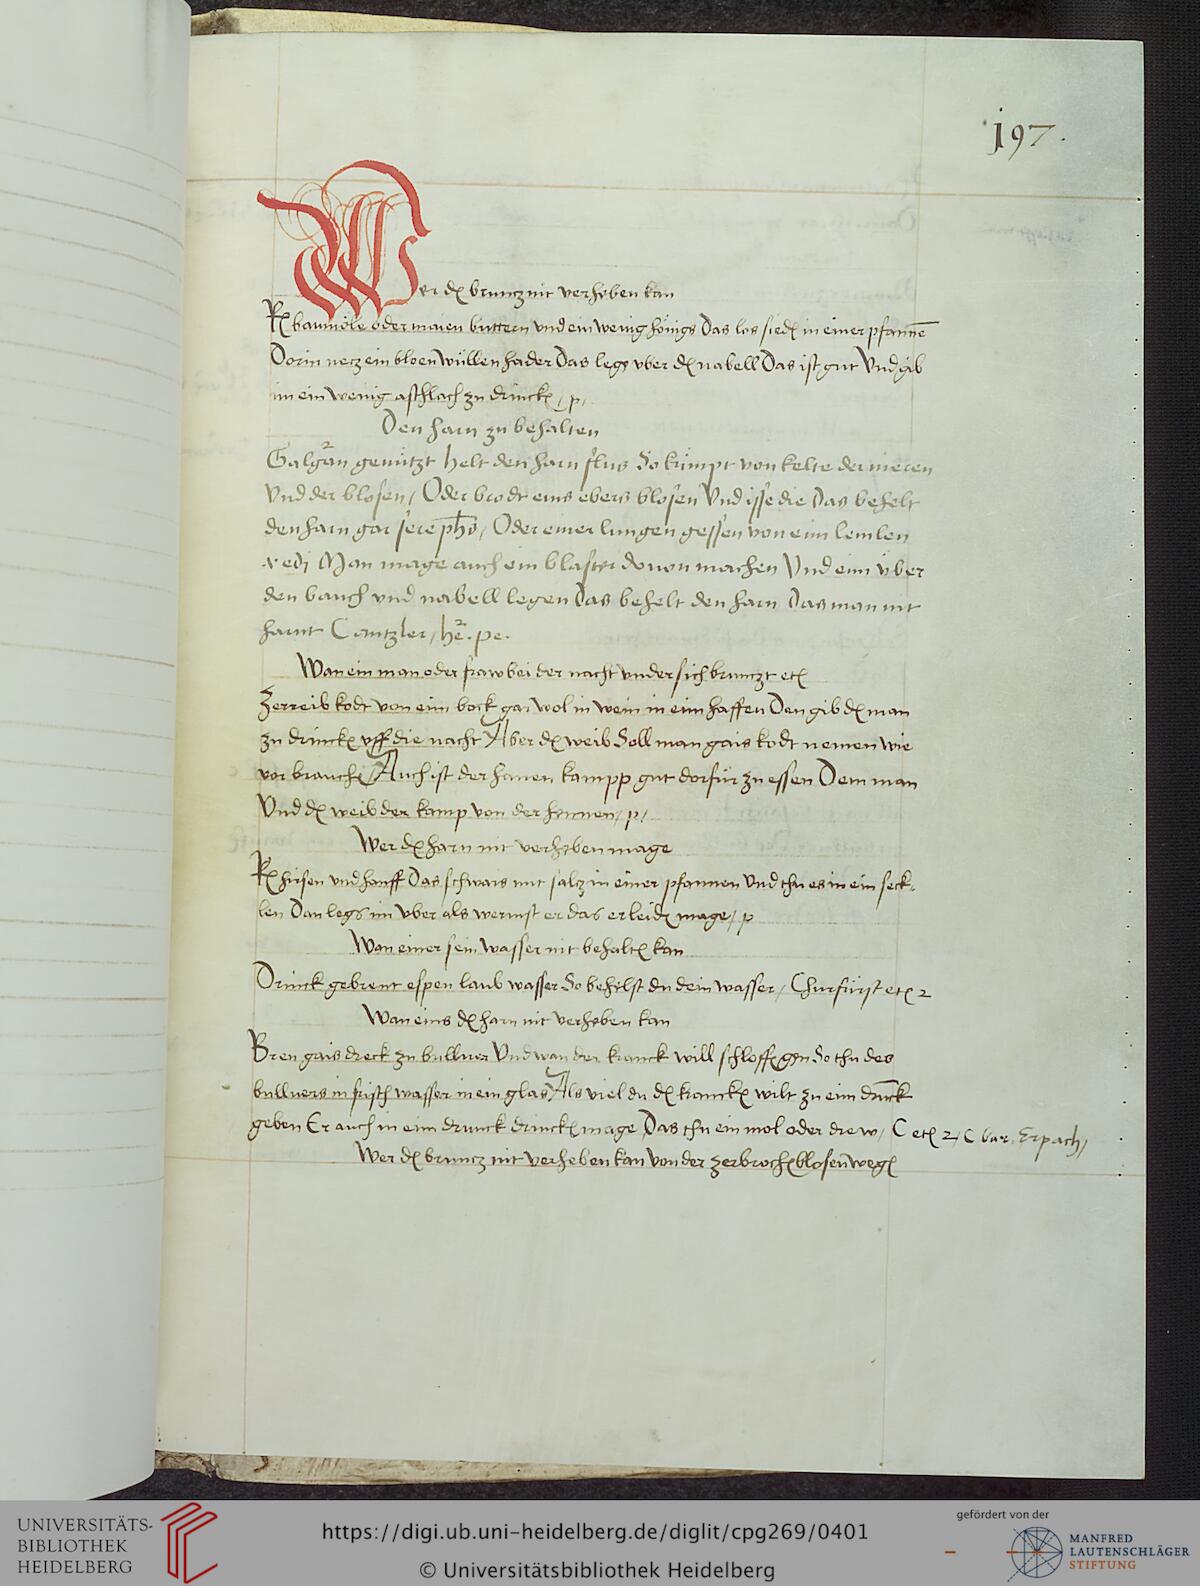 197.
Wer dz bruncz nit verheben kan
Rz baumöle oder maien buttern und ein wenig hönigs Das los siedz in einer pfanne
Dorin necz ein bloen wüllen hader Das legs vber dz nabell Das ist gut Und gib
im ein wenig aschlach zu drinckz, p,
Den harn zu behalten
Galgan genützt helt den harn flus So kümpt von kelte der nieren
Und der blosen, Oder brodt eins ebers blosen Und isse die Das behelt
den harn gar sere phs, Oder einer lungen gessen von eim lemlen
Man mage auch ein blaster douon machen Und eim über
den bauch vnd nabell legen Das behelt den harn Das man nit
harnt Cantzler, he. pe.
Wan ein man oder fraw bei der nacht under sich brunczt etz
Zerreib kodt von eim bock gar wol in wein in eim haffen Den gib dz man
zu drinckz vff die nacht Aber dz weib Soll man gais kodt nemen wie
vor brauchz Auch ist der hanen kampp gut dorfür zu essen Dem man
Und dz weib der kamp von der hennen, p,
Wer dz harn nit verheben mage
Rz hirsen vnd hanff Das schwais mit salcz in einer pfannen Und thu es in ein seck-
len Dan legs im vber als wermst er das erleidz mage, p
Wan einer sein wasser nit behaltz kan
Drinck gebrent espen laub wasser So behelst du dein wasser, Churfürst etz 2
Wan eins dz harn nit verheben kan
Bren gais dreck zu bulluer Und wan der kranck will schloffz gen So thu des
bulluers in frisch wasser in ein glas Als viel du dz kranckz wilt zu eim drunck
geben Er auch in eim drunck drinckz mage Das thu ein mol oder drew, C etz 2, C bur. Erpach,
Wer dz bruncz nit verheben kan von der zerbrochz blosen wegz
UNIVERSITÄTS-
BIBLIOTHEK
HEIDELBERG
https://digi.ub.uni-heidelberg.de/diglit/cpg269/0401
© Universitätsbibliothek Heidelberg
gefördert von der
MANFRED
LAUTENSCHLÄGER
STIFTUNG